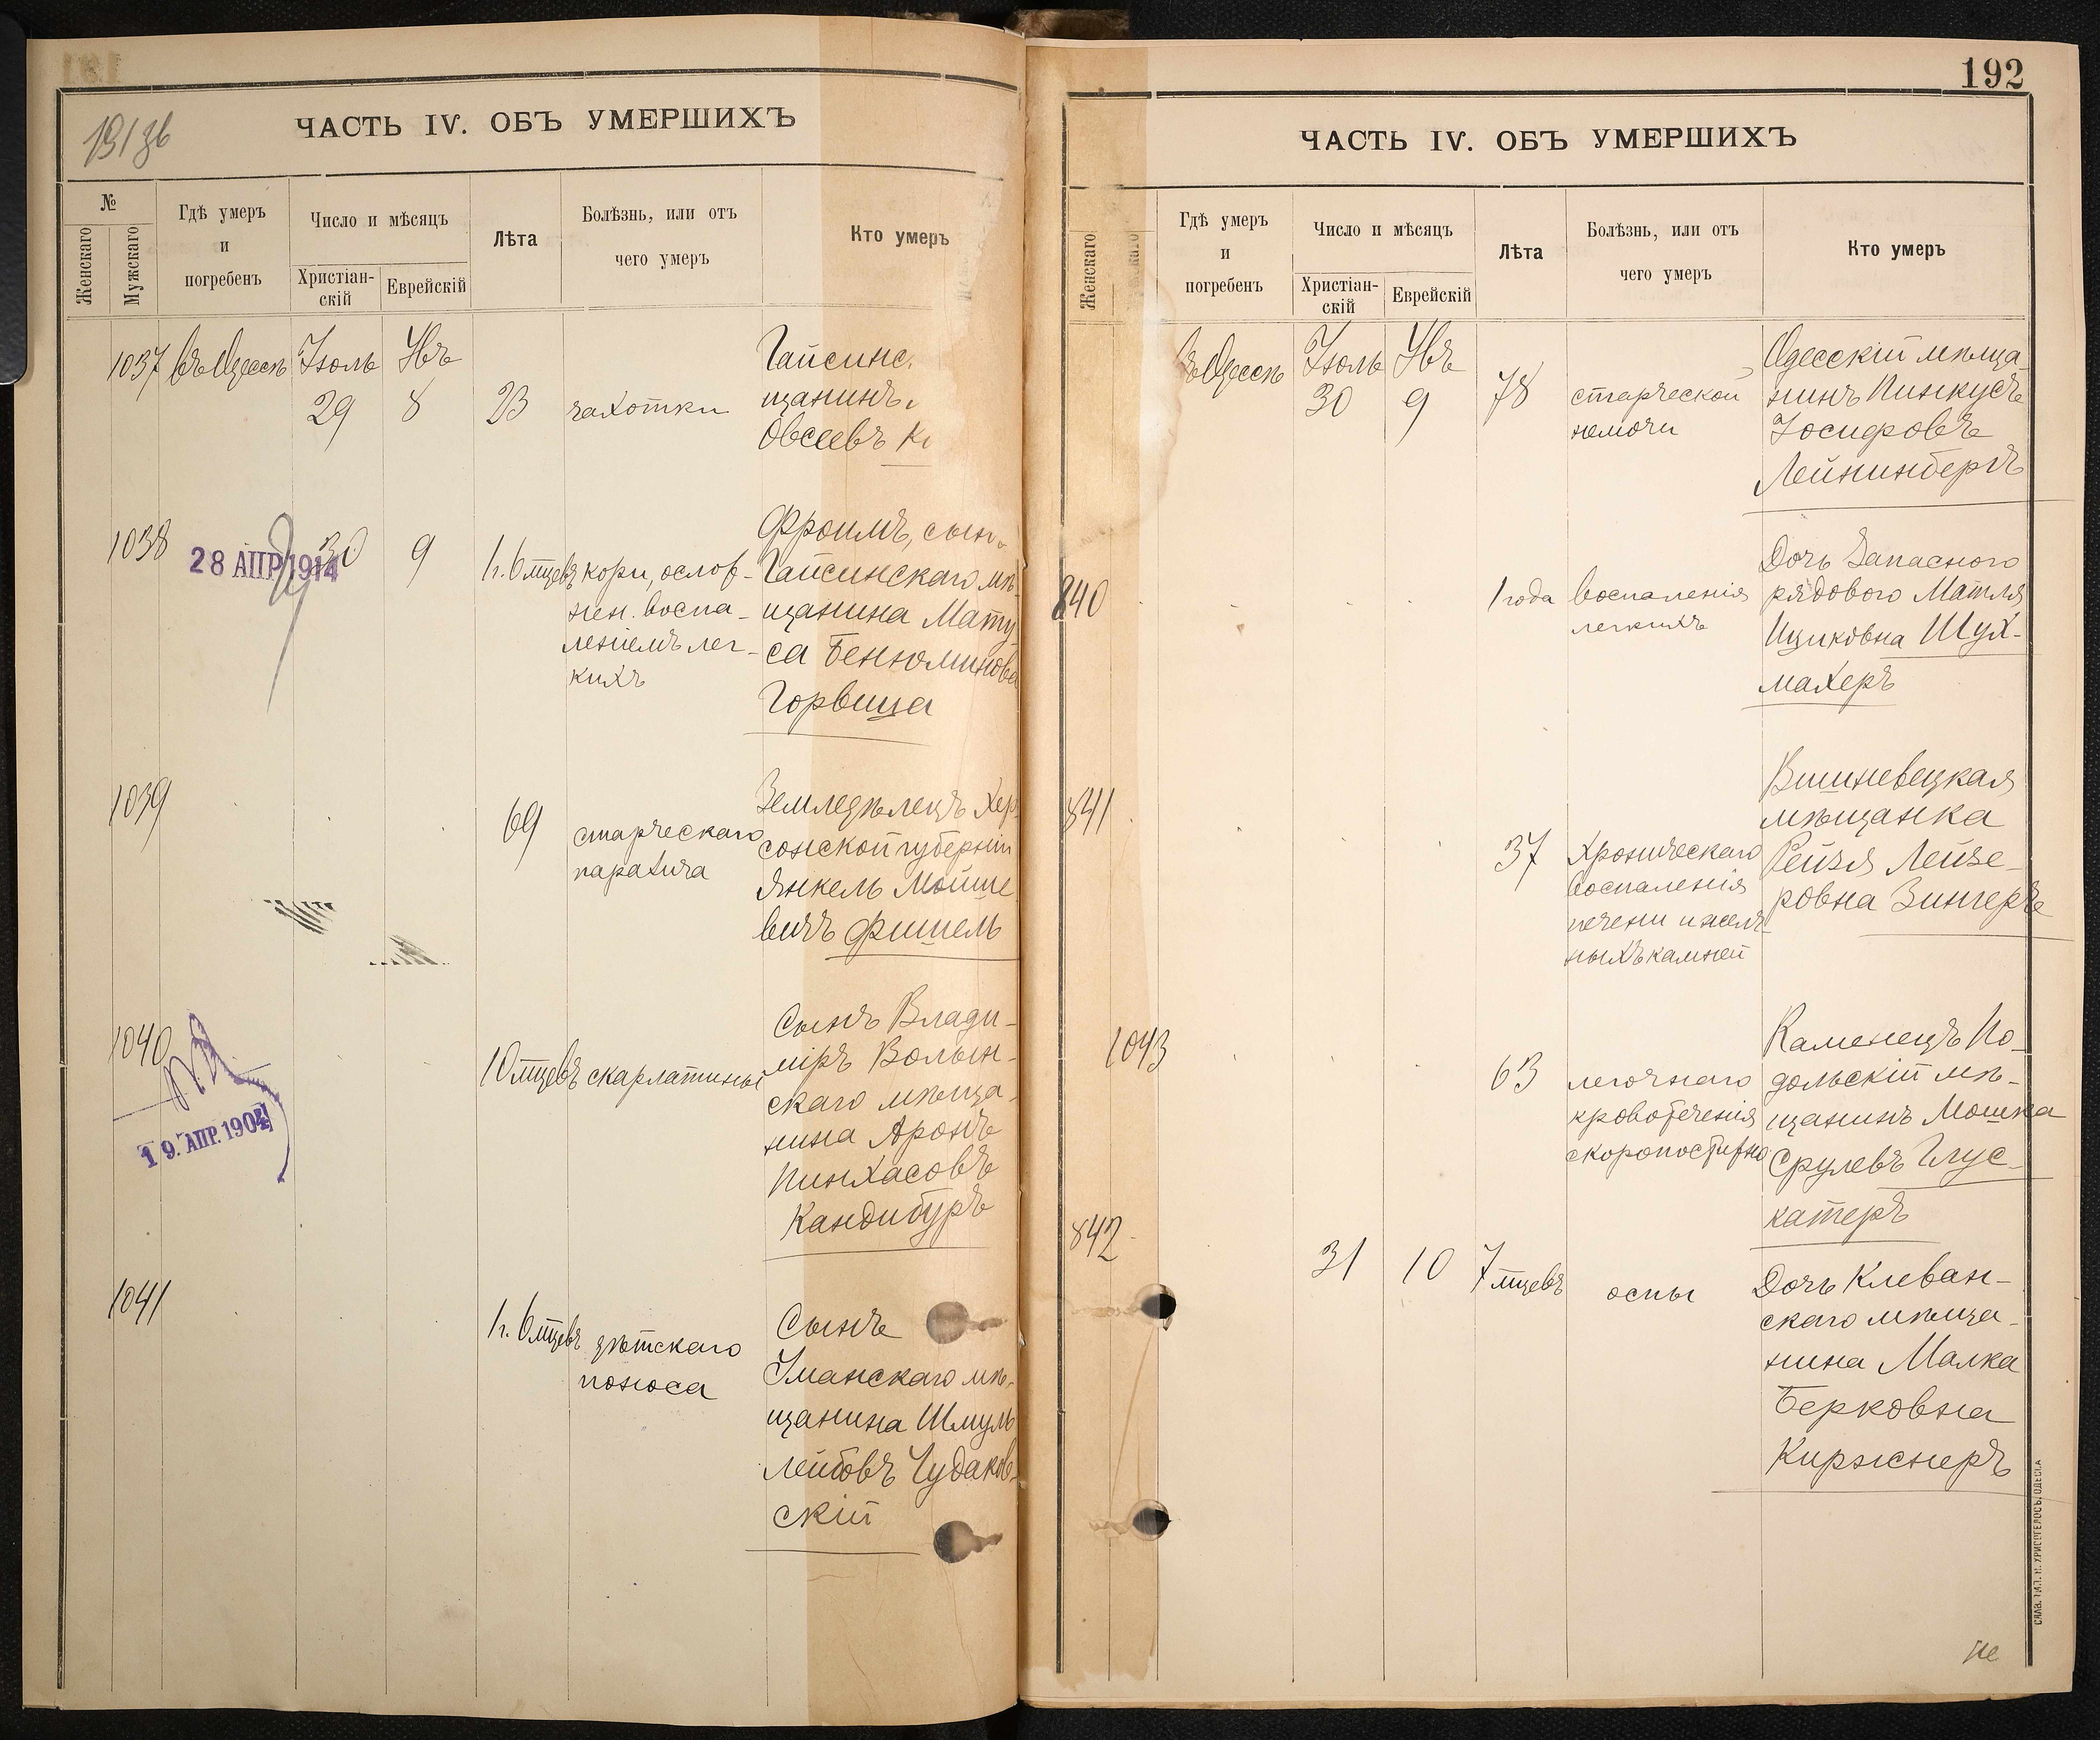 191 об
ЧАСТЬ IV. ОБЪ УМЕРШИХЪ
№
Женскаго
Мужскаго
Гдѣ умеръ
и
погребенъ
Число и мѣсяцъ
Христіан-
скій
Еврейскій
Лѣта
Болѣзнь, или отъ
чего умеръ
Кто умеръ
1037
въ Одессѣ
Іюль
29
Увъ
8
23
чахотки
Гайсинс
щанинъ
Овсеевъ
1038
28 АПР 1914
30
9
1 г. 6 мцевъ
кори, ослож-
нен. воспа-
леніемъ лег-
кихъ
Фроимъ, сын
Гайсинскаго мѣ-
щанина Мату
са Бенюминова
Горвица
1039
69
старческаго
паралича
Земледѣлецъ Хер
сонской губерніи
Янкель Мойше
вичъ Фишель
1040
19. АПР. 1904
10 мцевъ
скарлатины
Сынъ Влади-
міръ Волын-
скаго мѣща-
нина Аронъ
Пинхасовъ
Кандибуръ
1041
1 г. 6 мцевъ
дѣтскаго
поноса
Сынъ
Уманскаго мѣ-
щанина Шмуль
Лейбовъ Чудаков-
скій
192
ЧАСТЬ IV. ОБЪ УМЕРШИХЪ
Женскаго
Гдѣ умеръ
и
погребенъ
Число и мѣсяцъ
Христіан-
скій
Еврейскій
Лѣта
Болѣзнь, или отъ
чего умеръ
Кто умеръ
въ Одессѣ
Іюль
30
Увъ
9
78
старческой
немочи
Одесскій мѣща
нинъ Пинкусъ
Іосифовъ
Лейнинбергъ
840
1 года
воспаленія
легкихъ
Дочь запасного
рядового Матля
Ицковна Шух-
махеръ
841
37
хроническаго
воспаленія
печени и желч-
ныхъ камней
Вишневецкая
мѣщанка
Рейзя Лейзе-
ровна Зингеръ
1043
63
легочнаго
кровотеченія
скоропостижно
Каменецъ По-
дольскій мѣ-
щанинъ Мошка
Срулевъ Глус-
катеръ
842
31
10
7 мцевъ
оспы
Дочь Клеван-
скаго мѣща-
нина Малка
Берковна
Киржнеръ